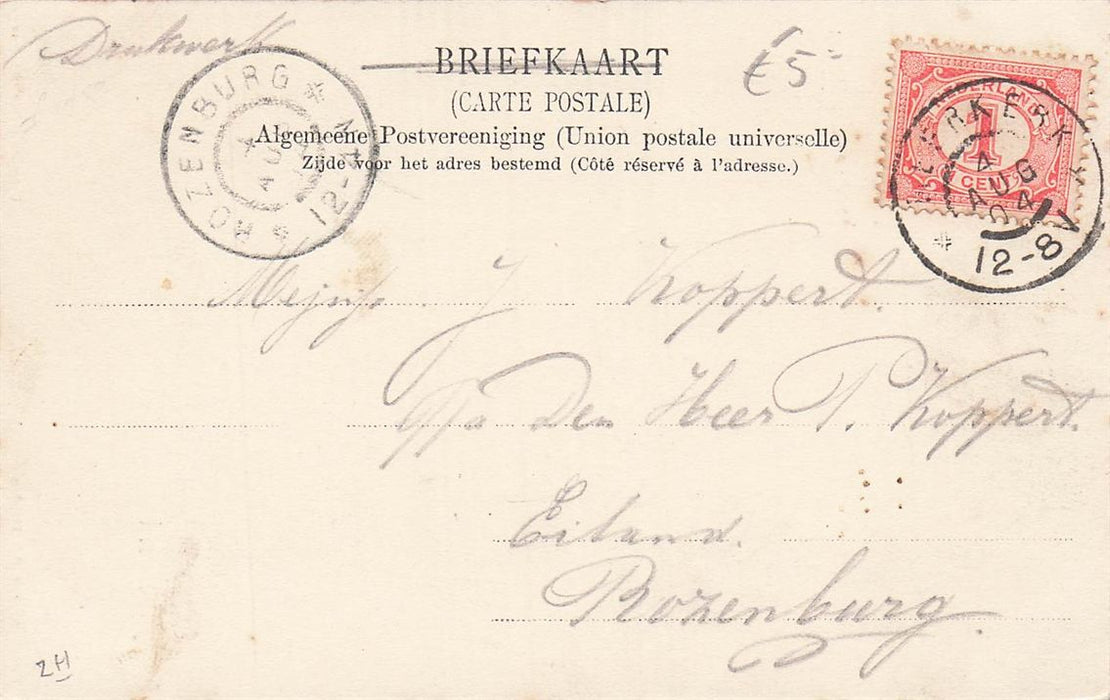 Drukwerk
BRIEFKAART
(CARTE POSTALE)
Algemeene Postvereeniging (Union postale universelle)
Zijde voor het adres bestemd (Côté réservé à l'adresse.)
€5-
ROZENBURG
4 AUG
12-4N
NEDERLAND
1
CENT
4
AUG
04
12-8V
J Koppert.
Den Heer P. Koppert.
Eiland.
Rozenburg
ZH